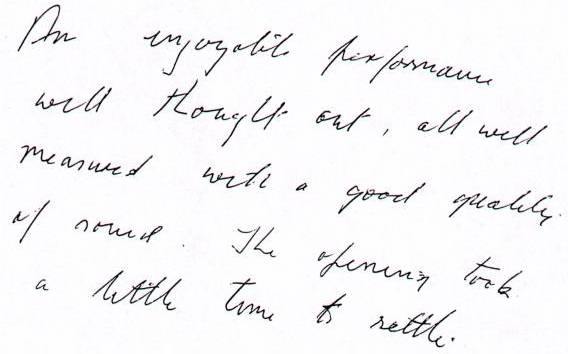 An enjoyable performance
well thought out, all well
measured with a good quality
of sound. The opening took
a little time to settle.